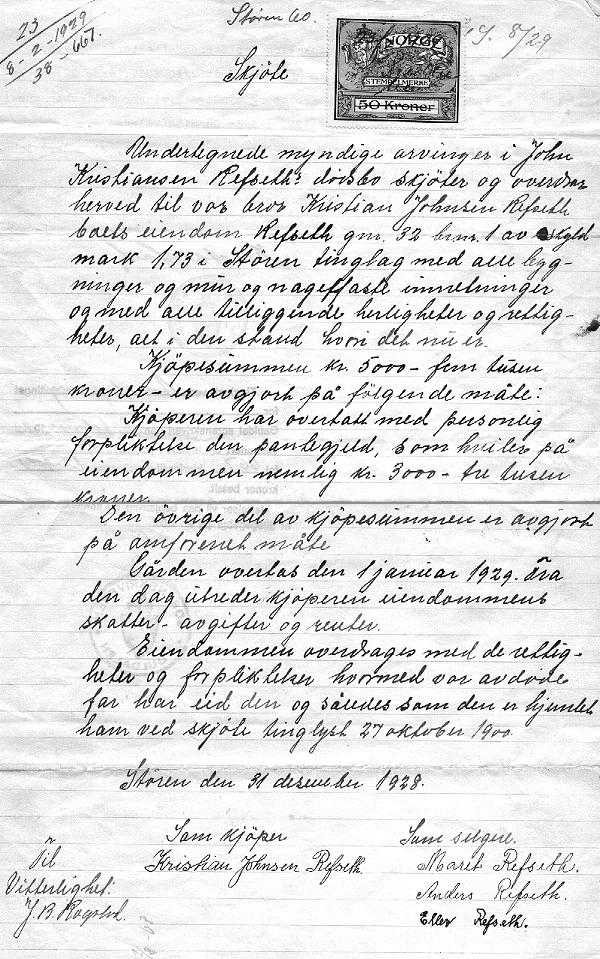 23
8-2-1929
38-667.
Stören 60.
8/29
NORGE
STEMPELMERKE
50 Kroner
Skjöte
Undertegnede myndige arvinger i John
Kristiansen Refseths dödsbo skjöter og overdrar
herved til vor bror Kristian Johnsen Refseth
boets eiendom Refseth gnr. 32 brnr. 1 av skyld
mark 1,73 i Stören tinglag med alle byg-
ninger og mur og nagelfaste innretninger
og med alle tilliggende herligheter og rettig-
heter, alt i den stand hvori det nu er.
Kjöpesummen kr. 5000 - fem tusen
kroner - er avgjort på fölgende måte:
Kjöperen har overtatt med personlig
forpliktelse den pantegjeld, som hviler på
eiendommen nemlig kr. 3000 - tre tusen
kroner.
Den övrige del av kjöpesummen er avgjort
på omforenet måte
Gården overtas den 1 januar 1929. Fra
den dag utreder kjöperen eiendommens
skatter - avgifter og renter.
Eiendommen overdrages med de rettig-
heter og forpliktelser hvormed vor avdöde
far har eid den og således som den er hjemlet
ham ved skjöte tinglyst 27 oktober 1900.
Stören den 31 desember 1928.
Som kjöper
Som selgere.
Til
Kristian Johnsen Refseth.
Maret Refseth.
Vitterlighet:
Anders Refseth.
J. B. Rogstad.
Eller Refseth.